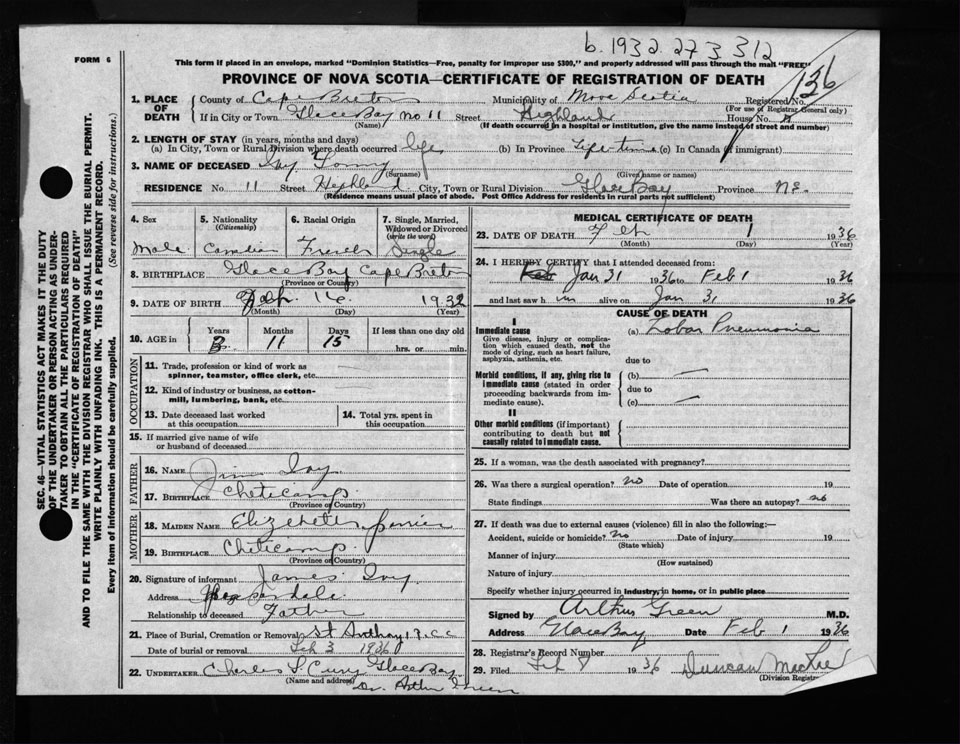 b. 1932. 273312
FORM 6
This form if placed in an envelope, marked "Dominion Statistics—Free, penalty for improper use $300," and properly addressed will pass through the mail "FREE"
PROVINCE OF NOVA SCOTIA—CERTIFICATE OF REGISTRATION OF DEATH
136
1. PLACE OF DEATH
County of Cape Breton Municipality of Nova Scotia Registered No.
(For use of Registrar General only)
If in City or Town Glace Bay No 11 Street Highland House No.
(Name) (If death occurred in a hospital or institution, give the name instead of street and number)
2. LENGTH OF STAY (in years, months and days)
(a) In City, Town or Rural Division where death occurred life (b) In Province Life-time (c) In Canada (if immigrant)
3. NAME OF DECEASED Ivy
(Surname) (Given name or names)
RESIDENCE No. 11 Street Highland City, Town or Rural Division Glace Bay Province NS.
(Residence means usual place of abode. Post Office Address for residents in rural parts not sufficient)
SEC. 46—VITAL STATISTICS ACT MAKES IT THE DUTY
OF THE UNDERTAKER OR PERSON ACTING AS UNDER-
TAKER TO OBTAIN ALL THE PARTICULARS REQUIRED
IN THE "CERTIFICATE OF REGISTRATION OF DEATH"
AND TO FILE THE SAME WITH THE DIVISION REGISTRAR WHO SHALL ISSUE THE BURIAL PERMIT.
WRITE PLAINLY WITH UNFADING INK. THIS IS A PERMANENT RECORD.
Every item of information should be carefully supplied. (See reverse side for instructions.)
4. Sex
Male
5. Nationality
(Citizenship)
Canadian
6. Racial Origin
French
7. Single, Married, Widowed or Divorced
(write the word)
Single
8. BIRTHPLACE Glace Bay Cape Breton
(Province or Country)
9. DATE OF BIRTH Feb. 16 1932
(Month) (Day) (Year)
10. AGE in Years Months Days If less than one day old
3 11 15 hrs. or min.
OCCUPATION
11. Trade, profession or kind of work as
spinner, teamster, office clerk, etc.
12. Kind of industry or business, as cotton-
mill, lumbering, bank, etc.
13. Date deceased last worked
at this occupation
14. Total yrs. spent in
this occupation
15. If married give name of wife
or husband of deceased
FATHER
16. NAME Jim Ivy
17. BIRTHPLACE Cheticamp.
(Province or Country)
MOTHER
18. MAIDEN NAME Elizabeth
19. BIRTHPLACE Cheticamp.
(Province or Country)
20. Signature of informant James Ivy
Address
Relationship to deceased Father
21. Place of Burial, Cremation or Removal St Anthony
Date of burial or removal Feb 3 1936
22. UNDERTAKER Charles S. Curry Glace Bay
(Name and address)
Dr. Arthur Green
MEDICAL CERTIFICATE OF DEATH
23. DATE OF DEATH Feb 1 1936
(Month) (Day) (Year)
24. I HEREBY CERTIFY that I attended deceased from:
Jan 31 1936 to Feb 1 1936
and last saw him alive on Jan 31 1936
CAUSE OF DEATH
I
Immediate cause (a) Lobar Pneumonia
Give disease, injury or complica-
tion which caused death, not the
mode of dying, such as heart failure,
asphyxia, asthenia, etc.
due to
Morbid conditions, if any, giving rise to
immediate cause (stated in order
proceeding backwards from im-
mediate cause).
(b)
due to
(c)
II
Other morbid conditions (if important)
contributing to death but not
causally related to immediate cause.
25. If a woman, was the death associated with pregnancy?
26. Was there a surgical operation? no Date of operation 19
State findings Was there an autopsy? no
27. If death was due to external causes (violence) fill in also the following:—
Accident, suicide or homicide? no Date of injury 19
(State which)
Manner of injury
(How sustained)
Nature of injury
Specify whether injury occurred in industry, in home, or in public place
Signed by Arthur Green M.D.
Address Glace Bay Date Feb 1 1936
28. Registrar's Record Number
29. Filed Feb 8 1936 Duncan
(Division Registrar)